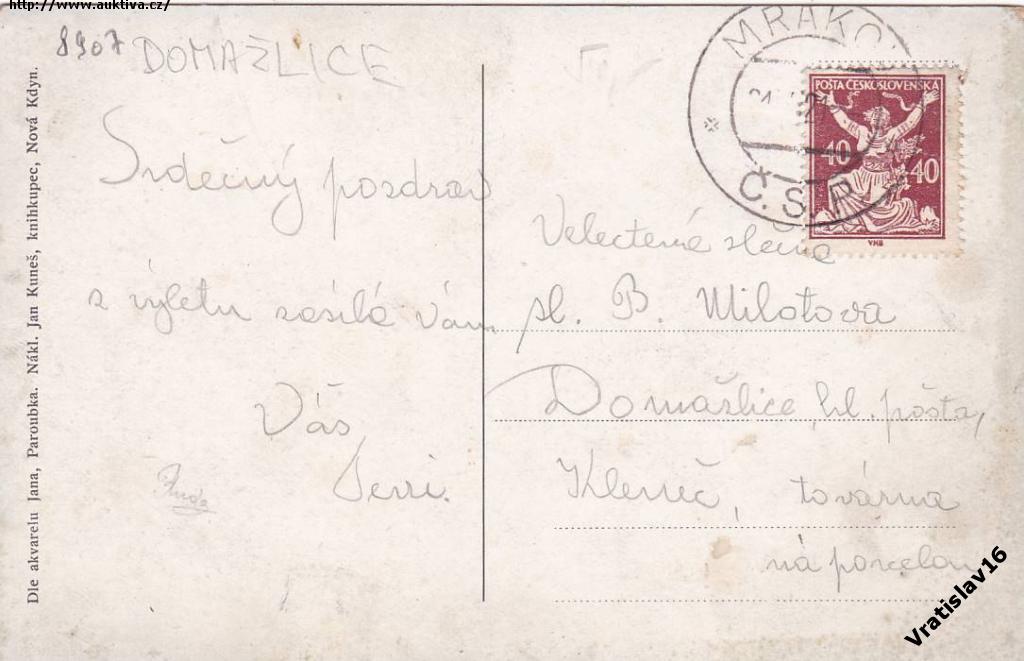 http://www.auktiva.cz/
8907 DOMAŽLICE
Srdečný pozdrav
z výletu zasílá Vám
Váš
Velectěná slečna
sl. B. Milotova
Domažlice, hl. pošta,
Kleneč, továrna
na porcelan
MRAKO
Č.S.P.
POŠTA ČESKOSLOVENSKÁ
40 40
VHB
Die akvarelu Jana, Paroubka. Nákl. Jan Kuneš, knihkupec, Nová Kdyn.
Vratislav16